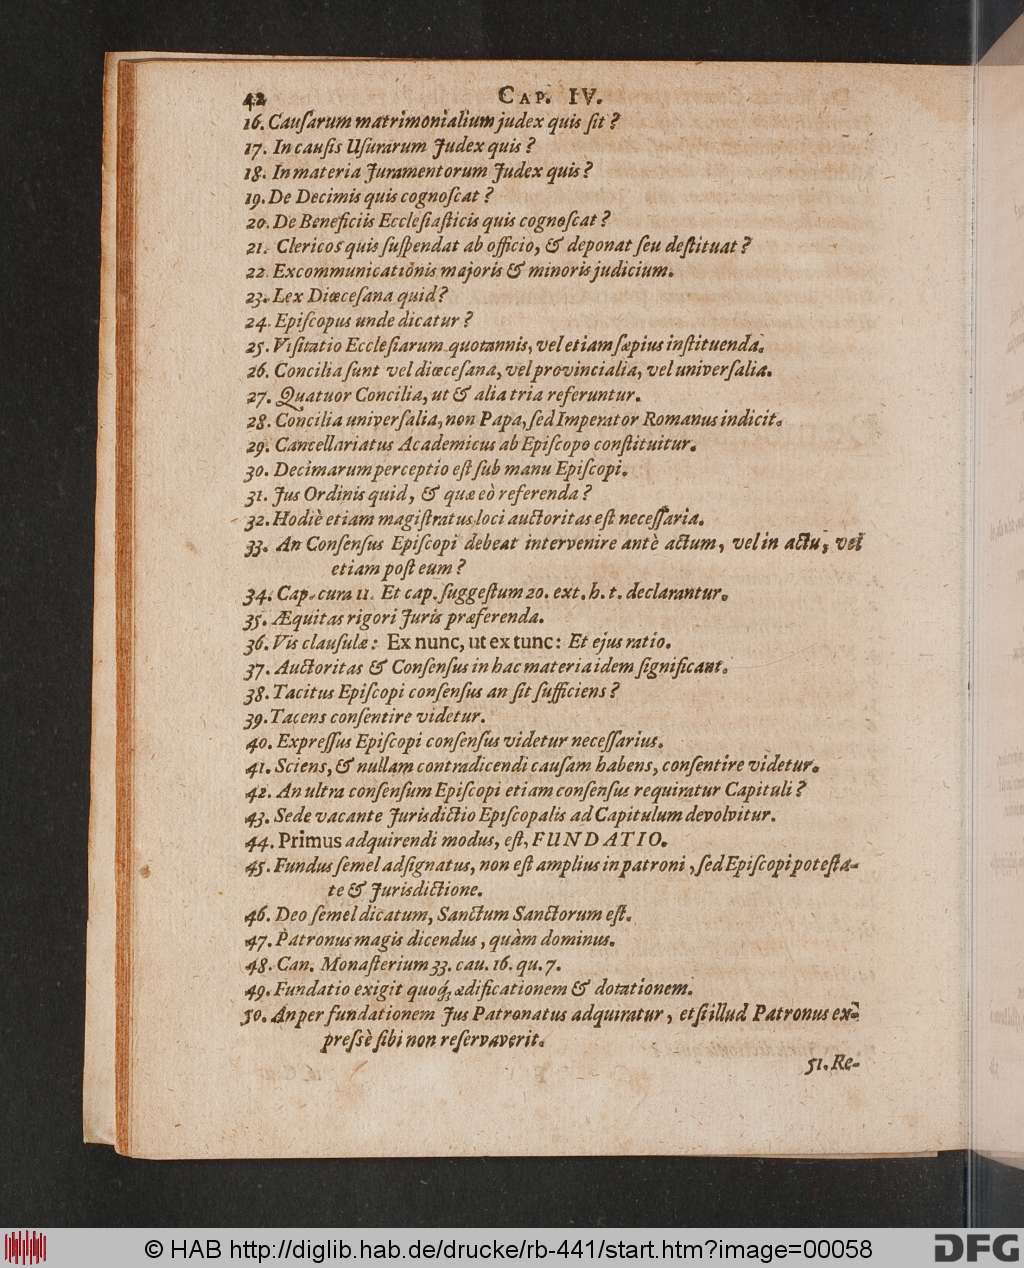 42 CAP. IV.
16. Cauſarum matrimonialium judex quis ſit?
17. In cauſis Uſurarum Judex quis?
18. In materia Juramentorum Judex quis?
19. De Decimis quis cognoſcat?
20. De Beneficiis Eccleſiaſticis quis cognoſcat?
21. Clericos quis ſuſpendat ab officio, & deponat ſeu deſtituat?
22. Excommunicationis majoris & minoris judicium.
23. Lex Diœceſana quid?
24. Epiſcopus unde dicatur?
25. Viſitatio Eccleſiarum quotannis, vel etiam ſæpius inſtituenda.
26. Concilia ſunt vel diœceſana, vel provincialia, vel univerſalia.
27. Quatuor Concilia, ut & alia tria referuntur.
28. Concilia univerſalia, non Papa, ſed Imperator Romanus indicit.
29. Cancellariatus Academicus ab Epiſcopo conſtituitur.
30. Decimarum perceptio eſt ſub manu Epiſcopi.
31. Jus Ordinis quid, & quæ eò referenda?
32. Hodiè etiam magiſtratus loci auctoritas eſt neceſſaria.
33. An Conſenſus Epiſcopi debeat intervenire antè actum, vel in actu, vel
etiam poſt eum?
34. Cap. cura 11. Et cap. ſuggeſtum 20. ext. h. t. declarantur.
35. Æquitas rigori Juris præferenda.
36. Vis clauſulæ: Ex nunc, ut ex tunc: Et ejus ratio.
37. Auctoritas & Conſenſus in hac materia idem ſignificant.
38. Tacitus Epiſcopi conſenſus an ſit ſufficiens?
39. Tacens conſentire videtur.
40. Expreſſus Epiſcopi conſenſus videtur neceſſarius.
41. Sciens, & nullam contradicendi cauſam habens, conſentire videtur.
42. An ultra conſenſum Epiſcopi etiam conſenſus requiratur Capituli?
43. Sede vacante Jurisdictio Epiſcopalis ad Capitulum devolvitur.
44. Primus adquirendi modus, eſt, FUNDATIO.
45. Fundus ſemel adſignatus, non eſt amplius in patroni, ſed Epiſcopi poteſta-
te & Jurisdictione.
46. Deo ſemel dicatum, Sanctum Sanctorum eſt.
47. Patronus magis dicendus, quàm dominus.
48. Can. Monaſterium 33. cau. 16. qu. 7.
49. Fundatio exigit quoq́; ædificationem & dotationem.
50. An per fundationem Jus Patronatus adquiratur, etſi illud Patronus ex-
preſsè ſibi non reſervaverit.
51. Re-
© HAB http://diglib.hab.de/drucke/rb-441/start.htm?image=00058
DFG